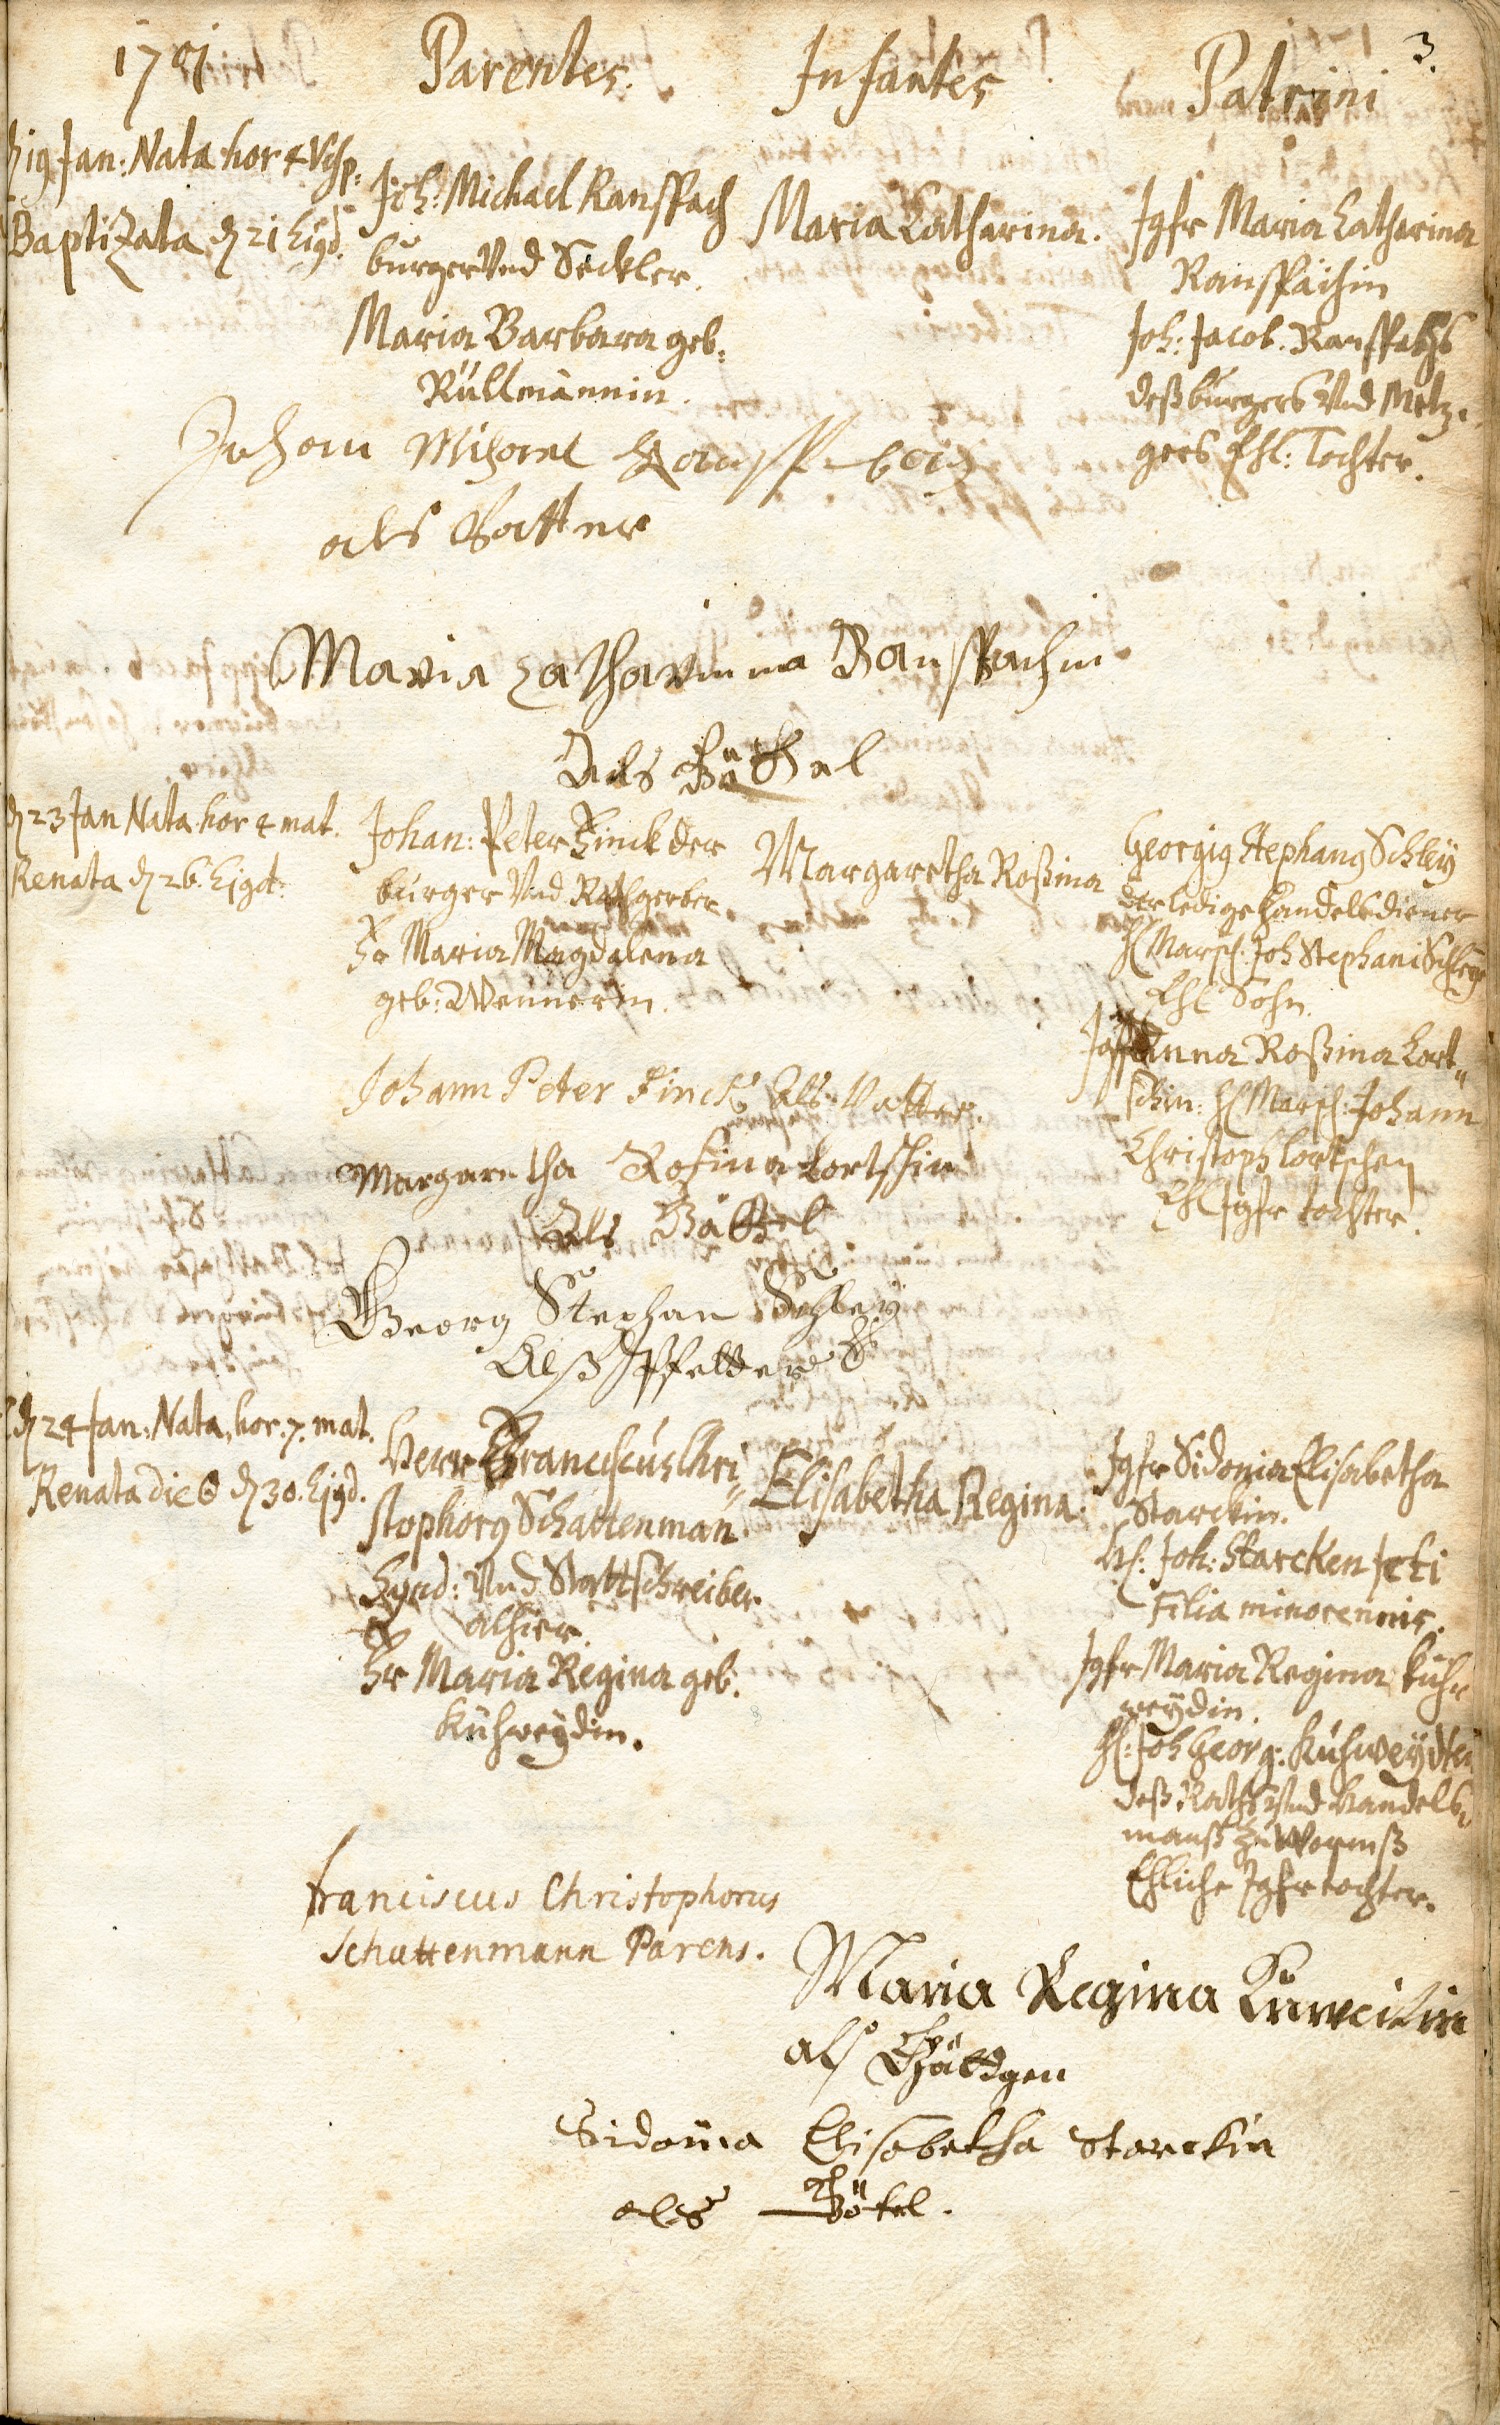 3.
1701 Parentes. Infantes Patrini
d 19 Jan: Nata hor 4 Vesp:
Baptizata d 21 Ejqd.
Joh: Michael Ranspach
burger Und Seckler.
Maria Barbara geb:
Rüllmännin.
Maria Catharina.
Jgfr Maria Catharina
Ranspächin
Joh: Jacob. Ranspachs
deß burgers Und Metz-
gers Ehl: Tochter.
Johan Michael Ranspach
als Vatter
Maria Catharinna Ranspachin
Als Göthel
d 23 Jan Nata hor 4 mat.
Renata d 26. Ejqd:
Johan: Peter Finck der
burger Und Rothgerber.
Fr Maria Magdalena
geb: Wennerin.
Margaretha Roßina
Georgig Stephang Schley
der ledige handelsdiener
H Marsch: Joh Stephani Schley
Ehl Sohn.
Jgfr Anna Roßina Cort"
schin: H Marsch: Johann
Christoph Cortschen
Ehl Jgfr tochter.
Johann Peter Finck Als Vatter.
Margaretha Rosina Cortschin
Als Göttel
Georg Stephan Schley
Alß Pfetter
d 24 Jan: Nata, hor. 7. mat.
Renata die d 30. Ejqd.
Herr Franciscus Chri"
stophorg Schattenman
Synd: Und Stattschreiber
alhier.
Fr Maria Regina geb.
Kühweydin.
Elisabetha Regina
Jgfr Sidonia Elisabetha
Starckin.
H: Joh: Starcken Jcti
Filia minorennis.
Jgfr Maria Regina Küh"
weydin.
H: Joh Georg: Kühweydten
deß Raths Und Handels"
manß Zu Wormß
Ehliche Jgfr tochter.
Franciscus Christophorus
Schattenmann Parens.
Maria Regina Kuweitin
alß Göttgen
Sidonia Elisabetha Starckin
als Götel.